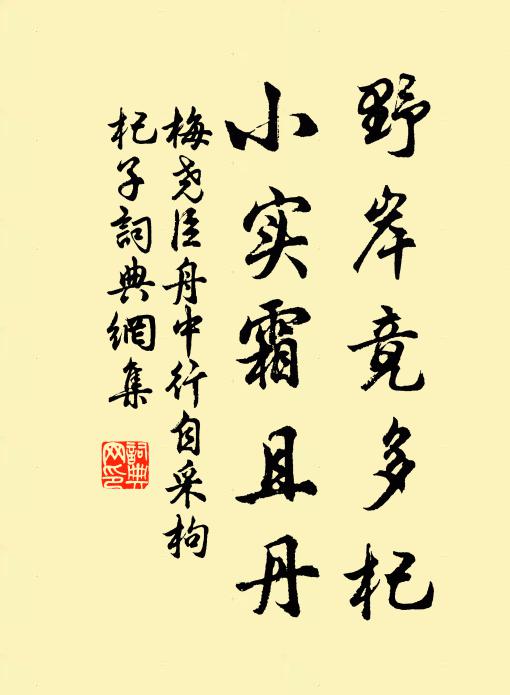 野岸竟多杞
小实霜且丹
梅尧臣舟中行自采枸
杞子詞典網集
詞典
网印